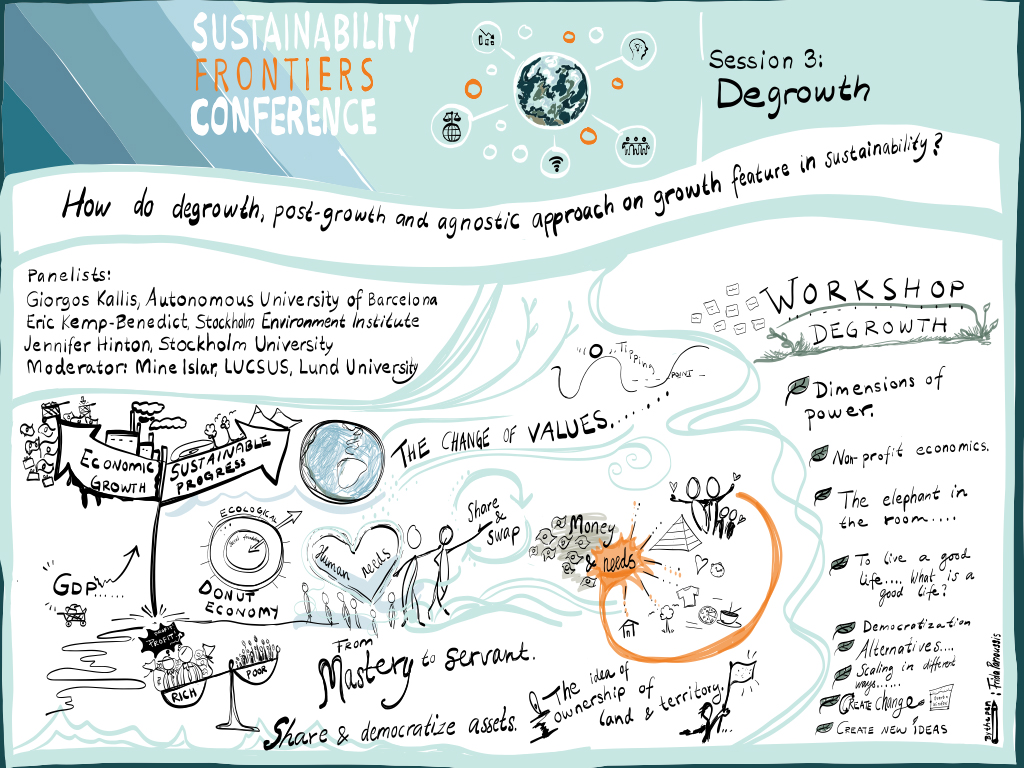 SUSTAINABILITY
FRONTIERS
CONFERENCE
Session 3:
Degrowth
How do degrowth, post-growth and agnostic approach on growth feature in sustainability?
Panelists:
Giorgos Kallis, Autonomous University of Barcelona
Eric Kemp-Benedict, Stockholm Environment Institute
Jennifer Hinton, Stockholm University
Moderator: Mine Islar, LUCSUS, Lund University
Tipping
POINT
THE CHANGE OF VALUES.......
ECONOMIC
GROWTH
SUSTAINABLE
PROGRESS
ECOLOGICAL
DONUT
ECONOMY
GDP......
Human needs
Share
&
swap
Money
& needs
PROFIT
RICH
POOR
FROM
Mastery to servant.
Share & democratize assets.
The idea of
ownership of
land & territory.
WORKSHOP
DEGROWTH
Dimensions of
power.
Non-profit economics.
The elephant in
the room....
To live a good
life.... What is a
good life?
Democratization
Alternatives....
Scaling in different
ways......
Create change
CREATE NEW IDEAS
By the pen: Frida Panoussis